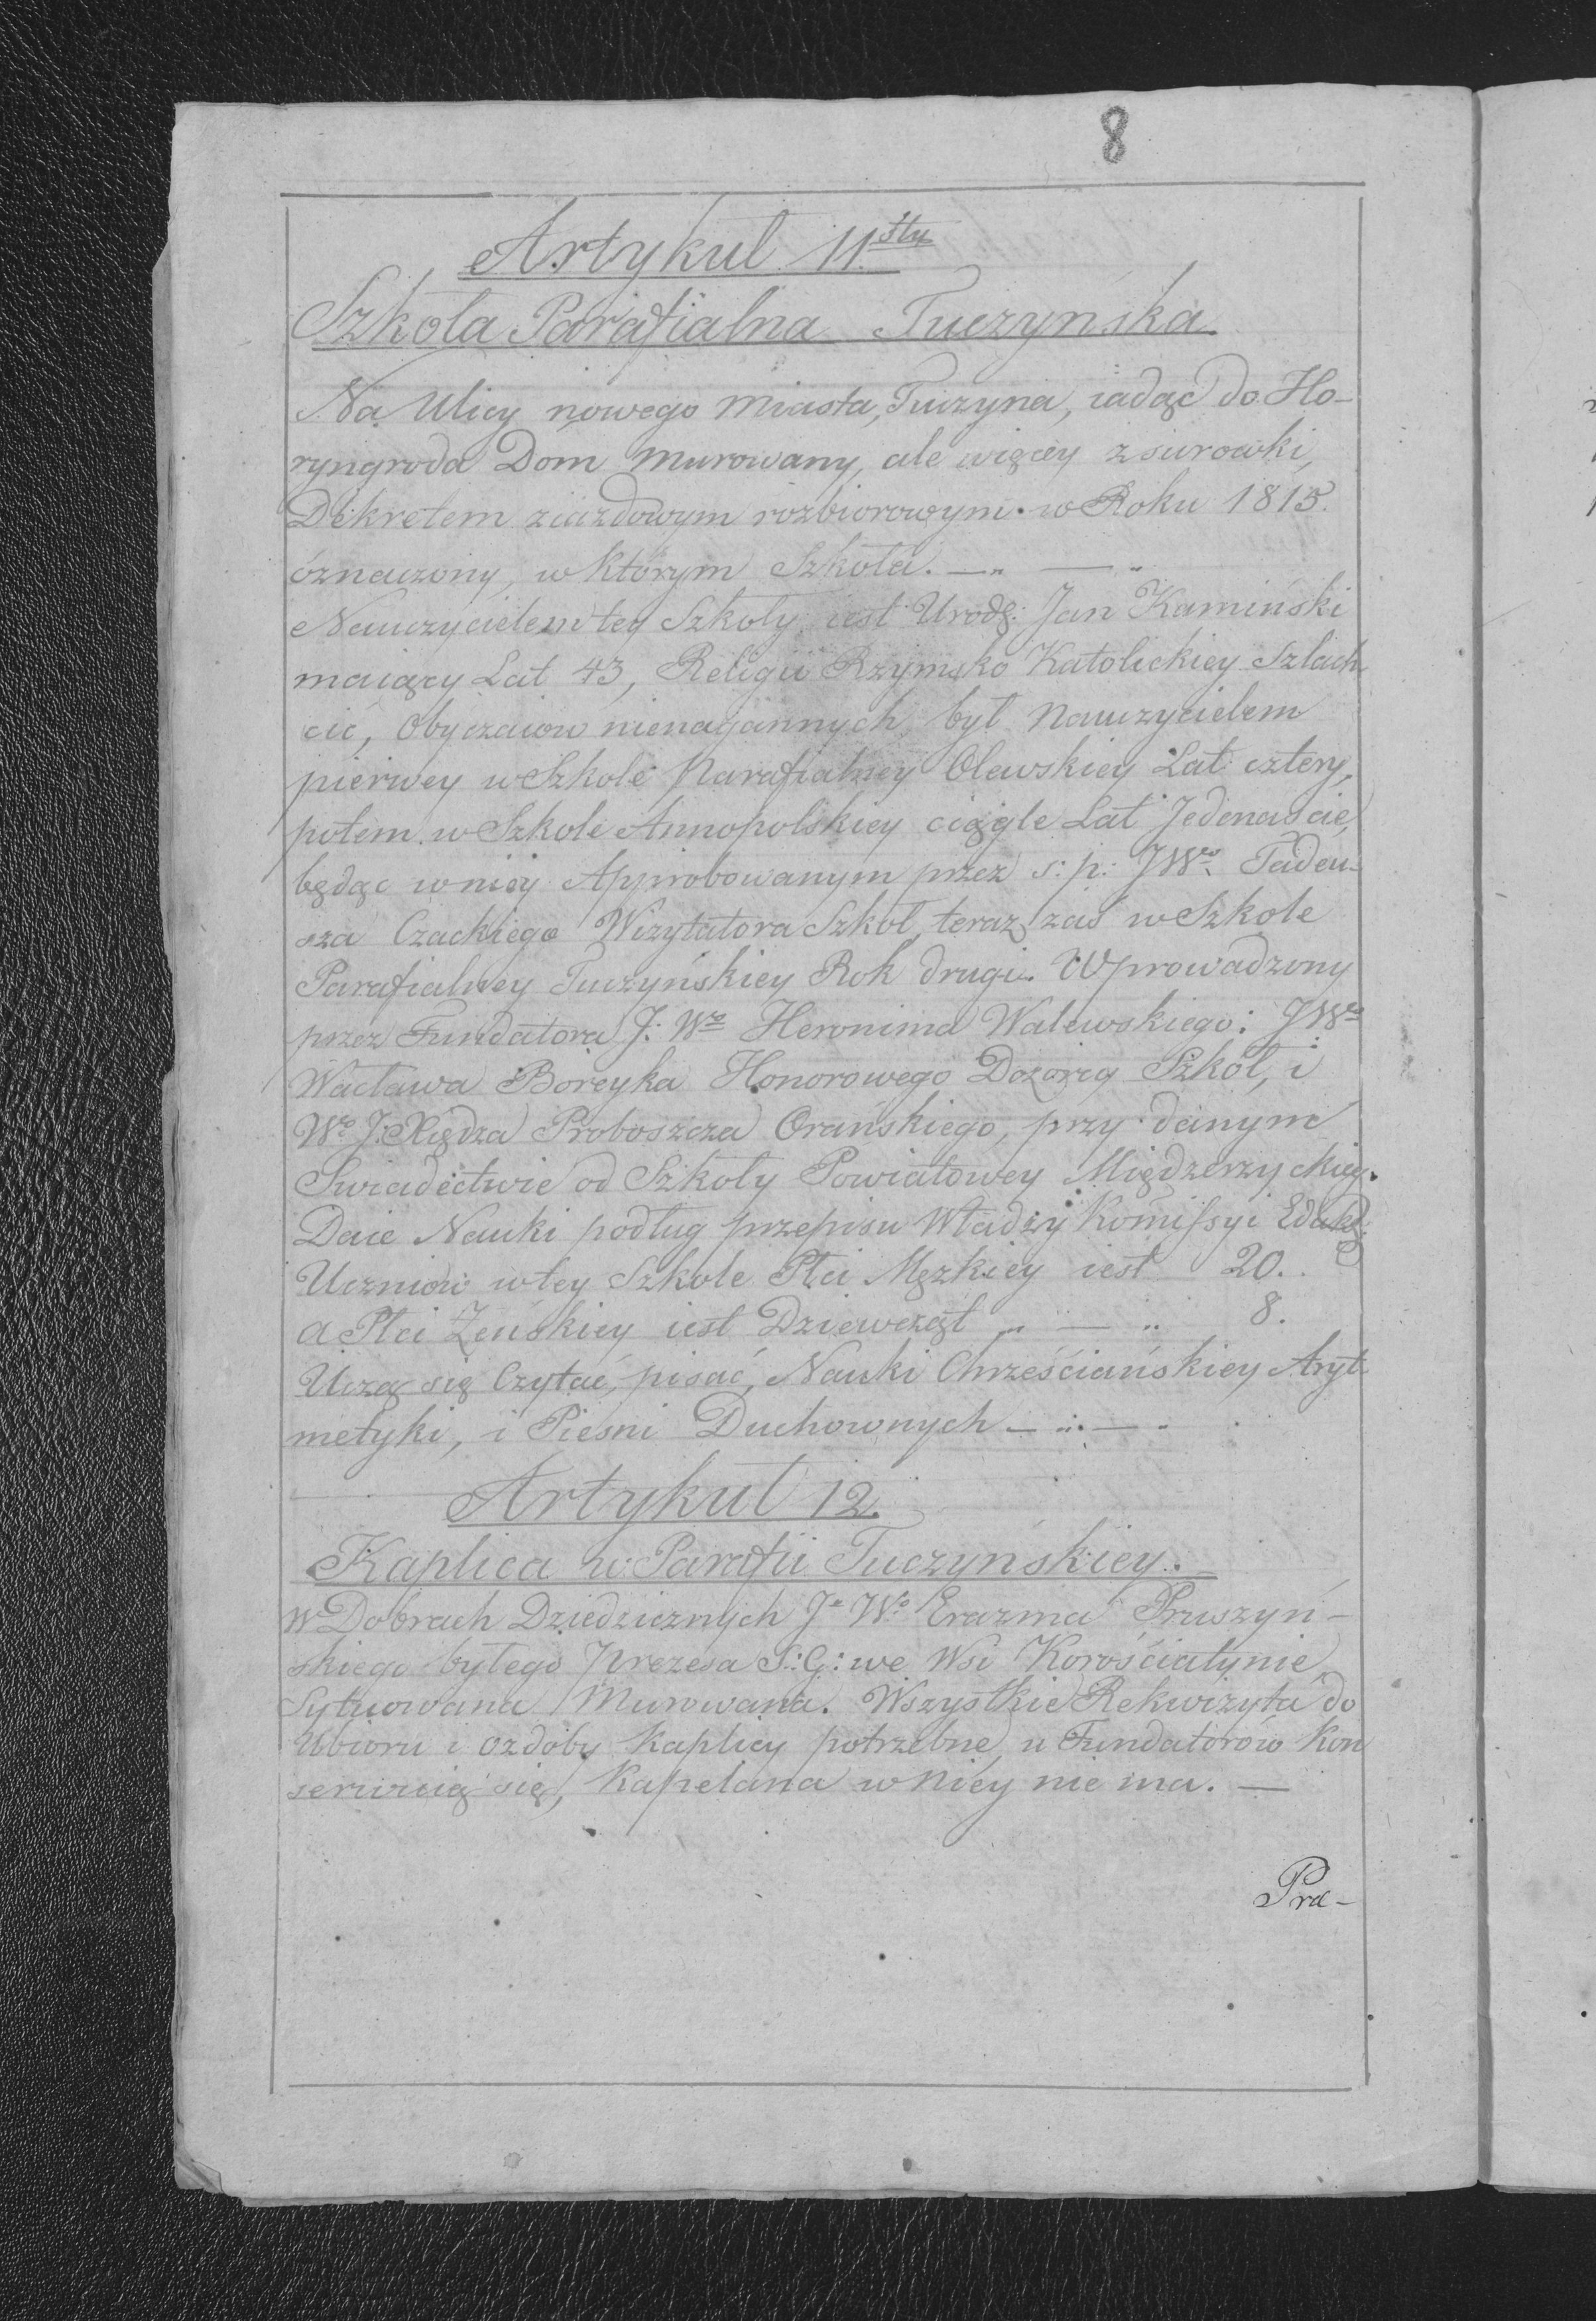 8
Artykuł 11.sty
Szkoła Parafialna Tuczyńska
Na Ulicy nowego Miasta, Tuczyna, iadąc do Ho-
ryngroda Dom murowany, ale więcey z surowki,
Dekretem ziazdowym rozbiorowym w Roku 1815.
oznaczony, w którym Szkoła. — „ — „
Nauczycielem tey Szkoły iest Urodz: Jan Kamiński
maiący Lat 43, Religii Rzymsko Katolickiey Szlach
cic, Obyczaiow nienagannych był Nauczycielem
pierwey w Szkole Parafialney Olewskiey Lat cztery,
potem w Szkole Annopolskiey ciągle Lat Jedenaście,
będąc w niey Approbowanym przez s: p: JWo Tadeu-
sza Czackiego Wizytatora Szkoł, teraz zaś w Szkole
Parafialney Tuczyńskiey Rok drugi. Wprowadzony
przez Fundatora J: Wo Heronima Walewskiego: JWo
Wacława Boreyka Honorowego Dozorcy Szkół, i
Wo J: Xiędza Proboszcza Orańskiego, przy danym
Swiadectwie od Szkoły Powiatowey Międzerzyckiey.
Daie Nauki podług przepisu Władzy Komissyi Eduk:
Uczniów w tey Szkole Płci Męzkiey iest 20.
a Płci Zeńskiey iest Dziewcząt „ — „ 8.
Uczą się Czytać, pisać, Nauki Chrześciańskiey Aryt
metyki, i Piesni Duchownych — „ — „
Artykuł 12.
Kaplica w Parafii Tuczyńskiey.
W Dobrach Dziedzicznych Jo Wo Erazma Pruszyń-
skiego byłego Prezesa S: G: we Wsi Korościatynie
Sytuowana Murowana. Wszystkie Rekwizyta do
Ubioru i ozdoby Kaplicy potrzebne, u Fundatorów Kon
serwuią się, Kapelana w niey nie ma. —
Pra-